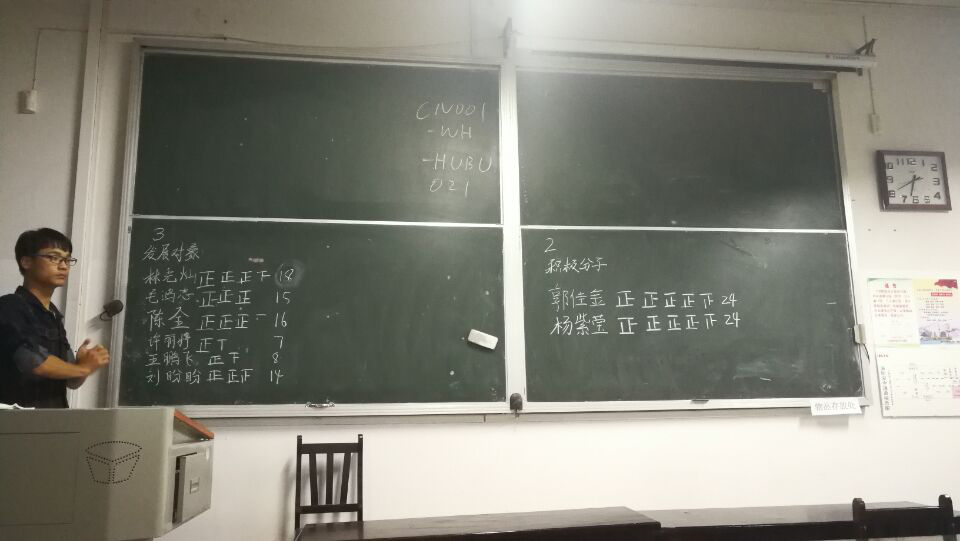 CN001
-WH
-HUBU
021
3
发展对象
林志灿 正正正下 18
毛鸿志 正正正 15
陈全 正正正一 16
许丽婷 正丅 7
王鹏飞 正下 8
刘盼盼 正正下 14
2
积极分子
郭佳鑫 正正正正下 24
杨紫莹 正正正正下 24
物品存放处